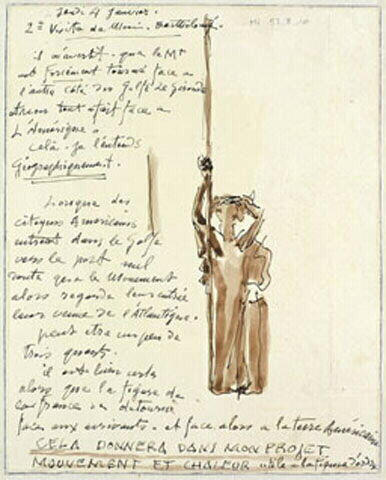 Jeudi 4 Janvier.
2e Visite de Monr. Bartholomé
il m'avertit que le Mt
est forcément tourné face a
l'autre côté du Golfe de Gironde
tout a fait face a
L'Amérique.
Celà. je l'entends
Géographiquement.
Lorsque des
citoyens Américains
entrent dans le Golfe
vers le port
route que le Monument
alors regarde leur entrée
leur venue de l'Atlantique.
peut etre un peu de
trois quarts.
il est bien
alors que la figure de
la france
face aux arrivants. et face alors a la terre Américaine
CELA DONNERA DANS MON PROJET
MOUVEMENT ET CHALEUR utile a la figure